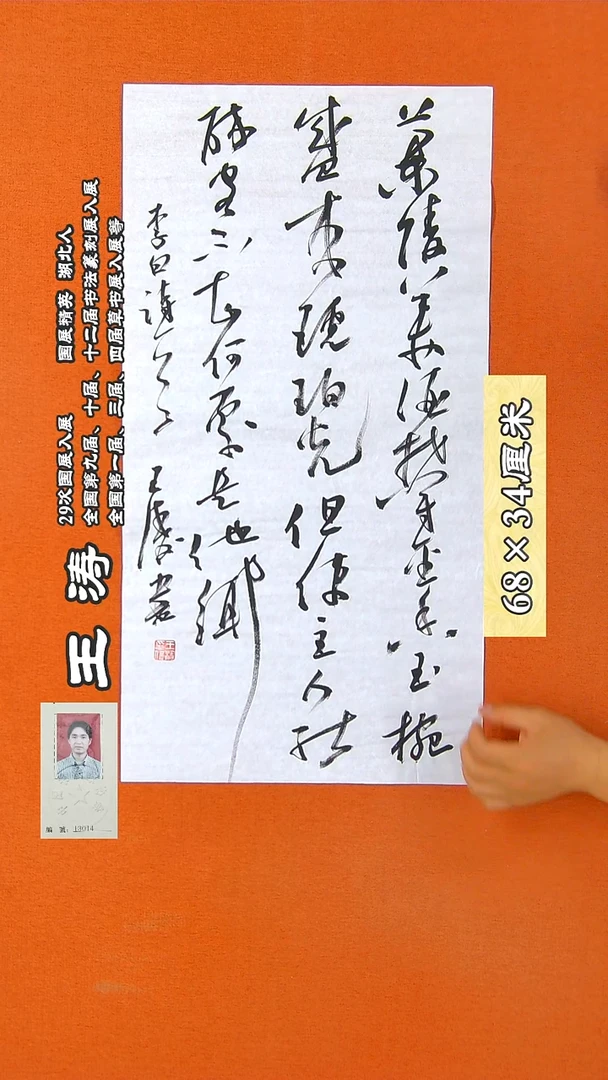 蘭陵美酒鬱金香玉椀
盛來琥珀光但使主人能
醉客不知何處是他鄉
李白詩一首 王濤書
68×34厘米
王涛
29次国展入展 国展精英 湖北人
全国第九届、十届、十二届书法篆刻展入展
全国第一届、三届、四届草书展入展等